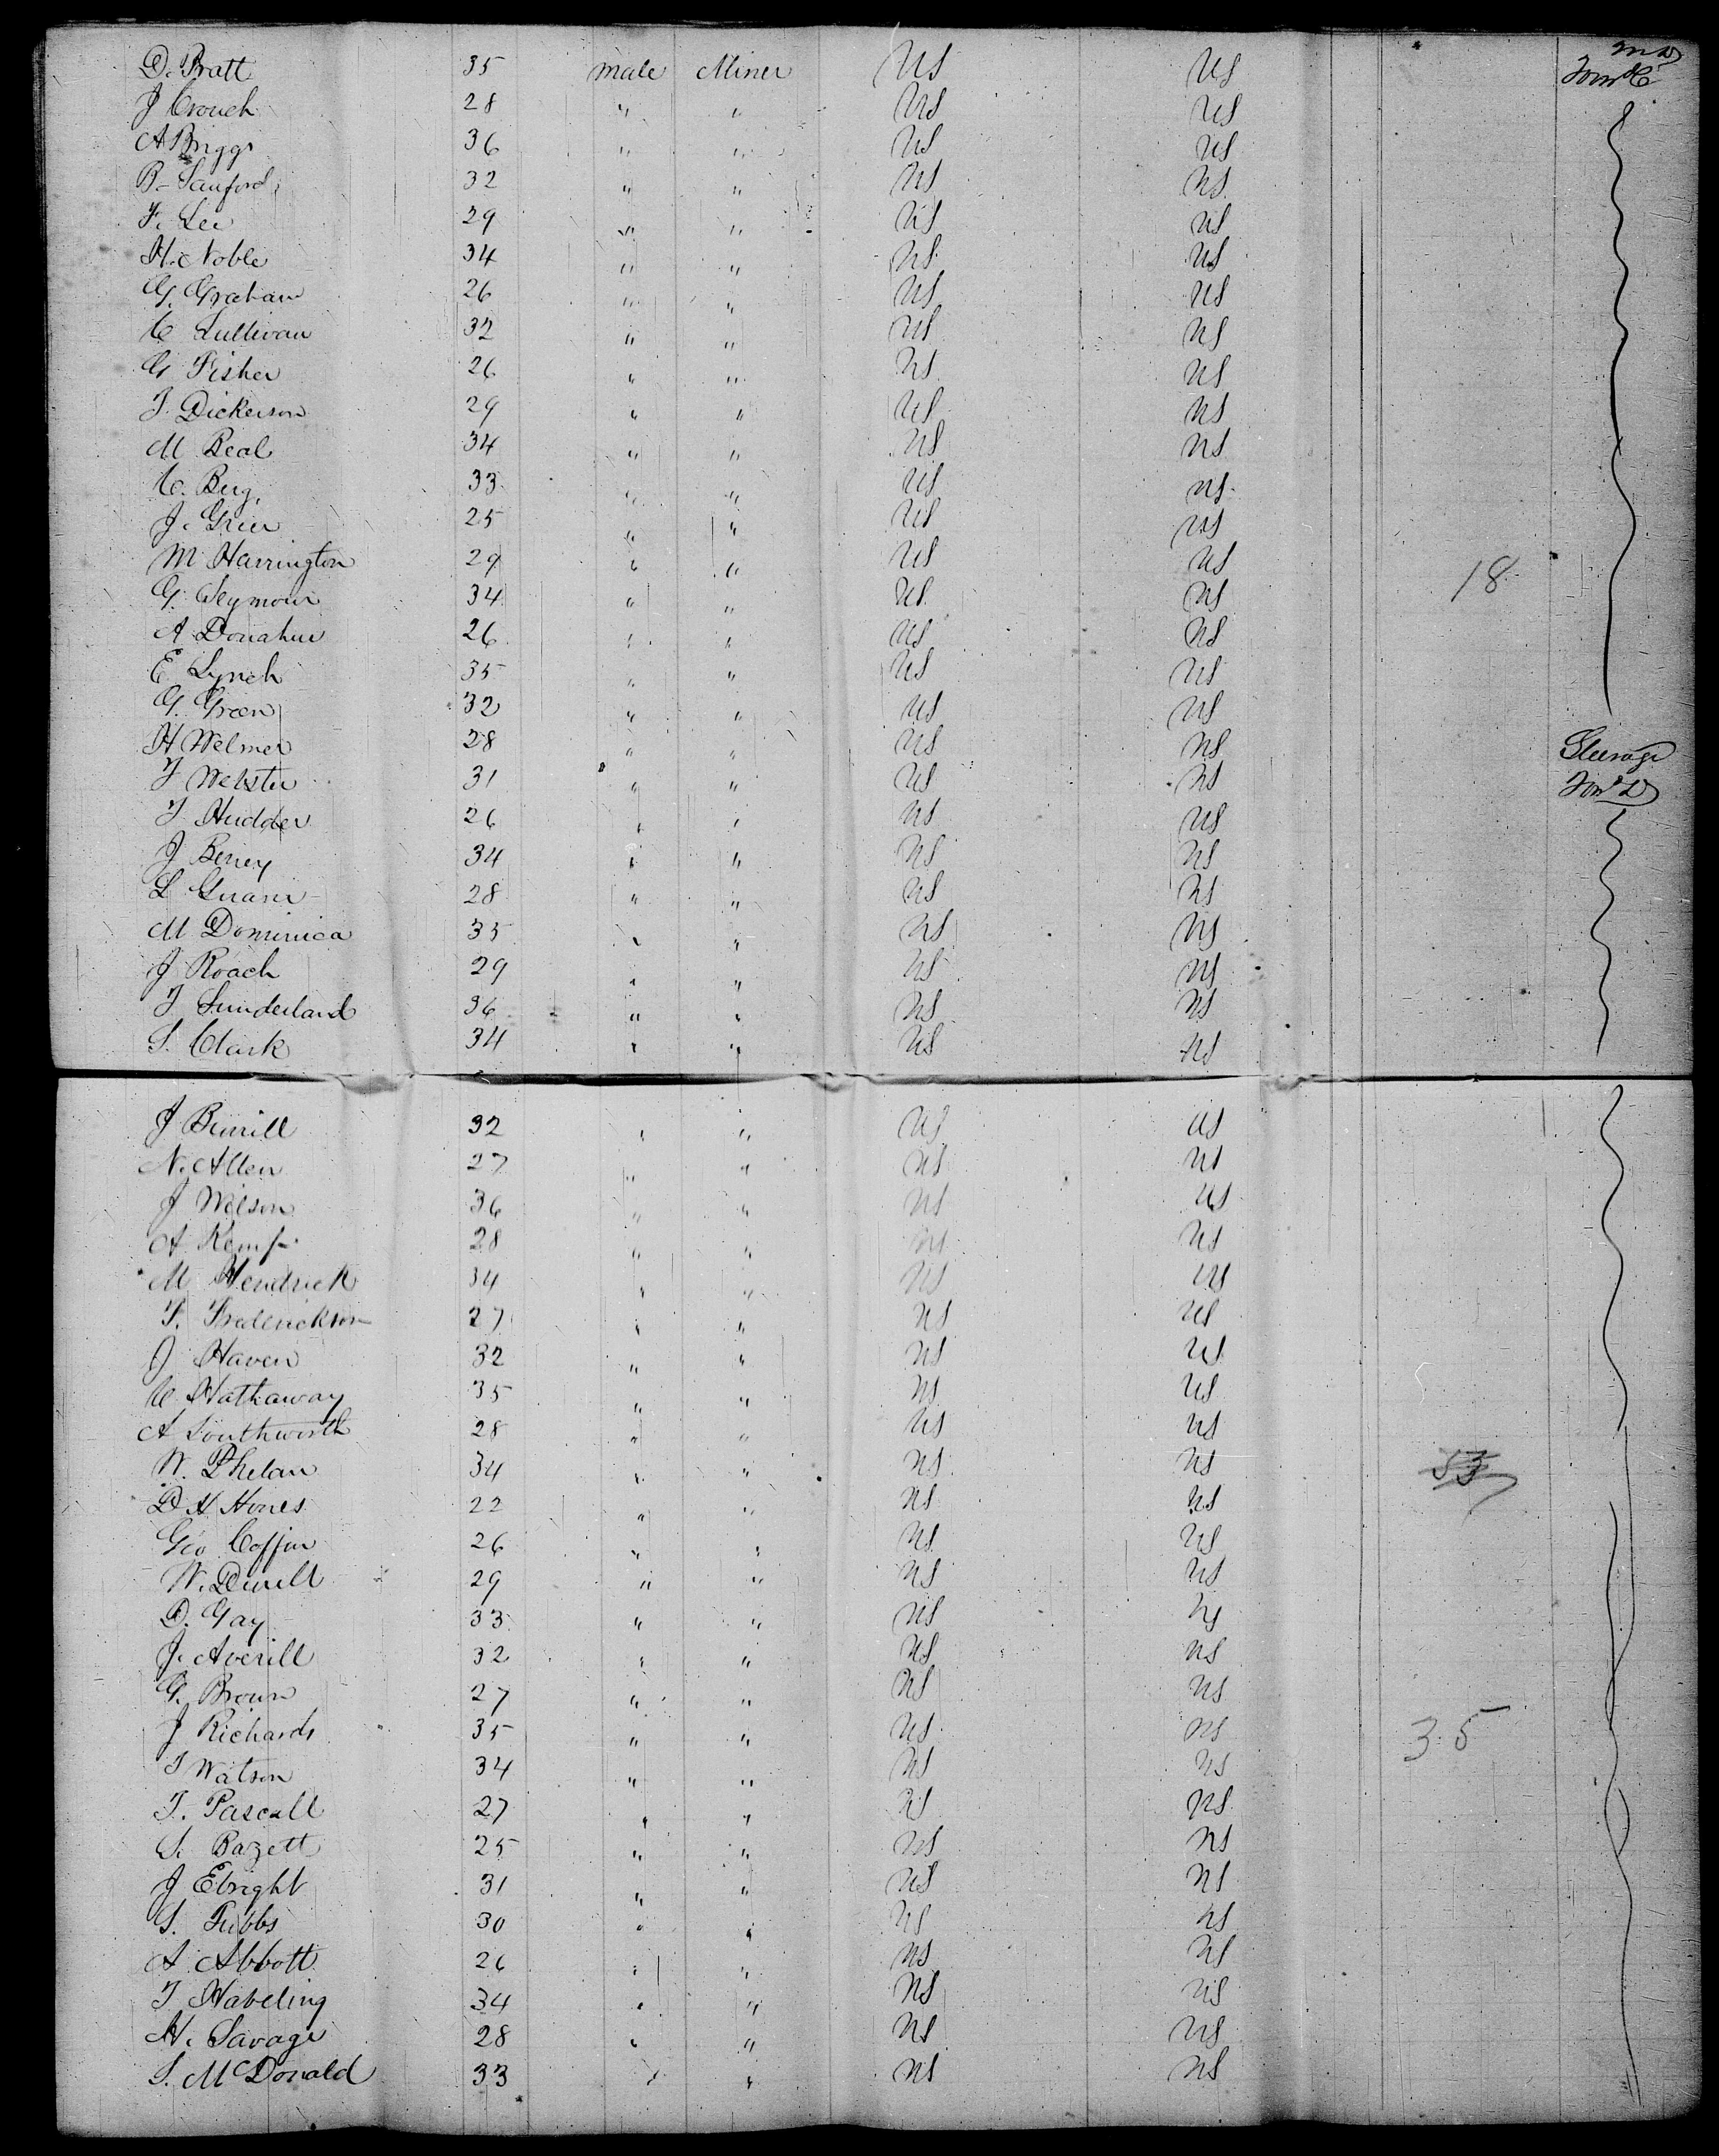 D. Pratt 35 Male Miner US US
J Crouch 28 " " US US
A Briggs 36 " " US US
B- Sanford 32 " " US US
F. Lee 29 " " US US
H. Noble 34 " " US US
G. Graham 26 " " US US
C Sullivan 32 " " US US
G Fisher 26 " " US US
J. Dickerson 29 " " US US
M Beal 34 " " US US
C. Berg 33 " " US US
J. Grier 25 " " US US
M Harrington 29 " " US US
18
G. Seymour 34 " " US US
A Donahue 26 " " US US
E Lynch 35 " " US US
G. Green 32 " " US US
H Welmer 28 " " US US
T Webster 31 " " US US
T Hudder 26 " " US US
J Beney 34 " " US US
L 28 " " US US
M Dominica 35 " " US US
J Roach 29 " " US US
T Sunderland 36 " " US US
S. Clark 34 " " US US
J Burrill 32 " " US US
N. Allen 27 " " US US
J Wilson 36 " " US US
A Kemp 28 " " US US
M Hendrick 34 " " US US
F. Frederickson 27 " " US US
J Haven 32 " " US US
C Hathaway 35 " " US US
A Southworth 28 " " US US
W. Phelan 34 " " US US
53
D H Hones 22 " " US US
Geo Coffin 26 " " US US
W. Durell 29 " " US US
D. Gay 33 " " US US
J. Averill 32 " " US US
G. Brown 27 " " US US
J Richards 35 " " US US
35
T Watson 34 " " US US
T. Pascall 27 " " US US
S. Bazett 25 " " US US
J Ebright 31 " " US US
S. Tubbs 30 " " US US
A Abbott 26 " " US US
T Habeling 34 " " US US
H. Savage 28 " " US US
S. McDonald 33 " " US US